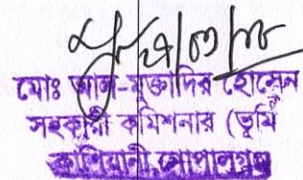 মোঃ আল-মুক্তাদির হোসেন
সহকারী কমিশনার (ভূমি
কাশিয়ানী, গোপালগঞ্জ